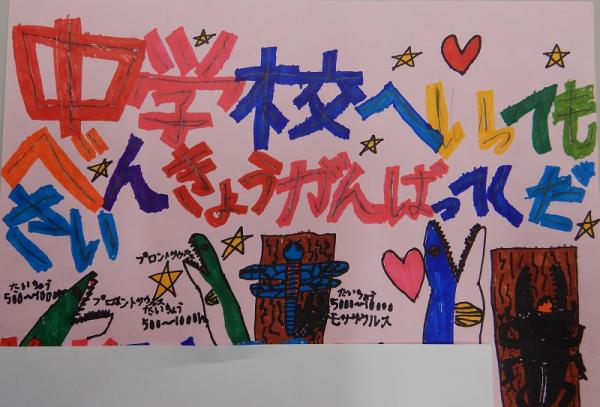 中学校へいっても
べんきょうがんばってくだ
さい
ブロントサウルス
たいちょう
500〜1000m
プロエントサウルス
たいちょう
500〜1000m
たいちょう
500〜1000m
モササウルス